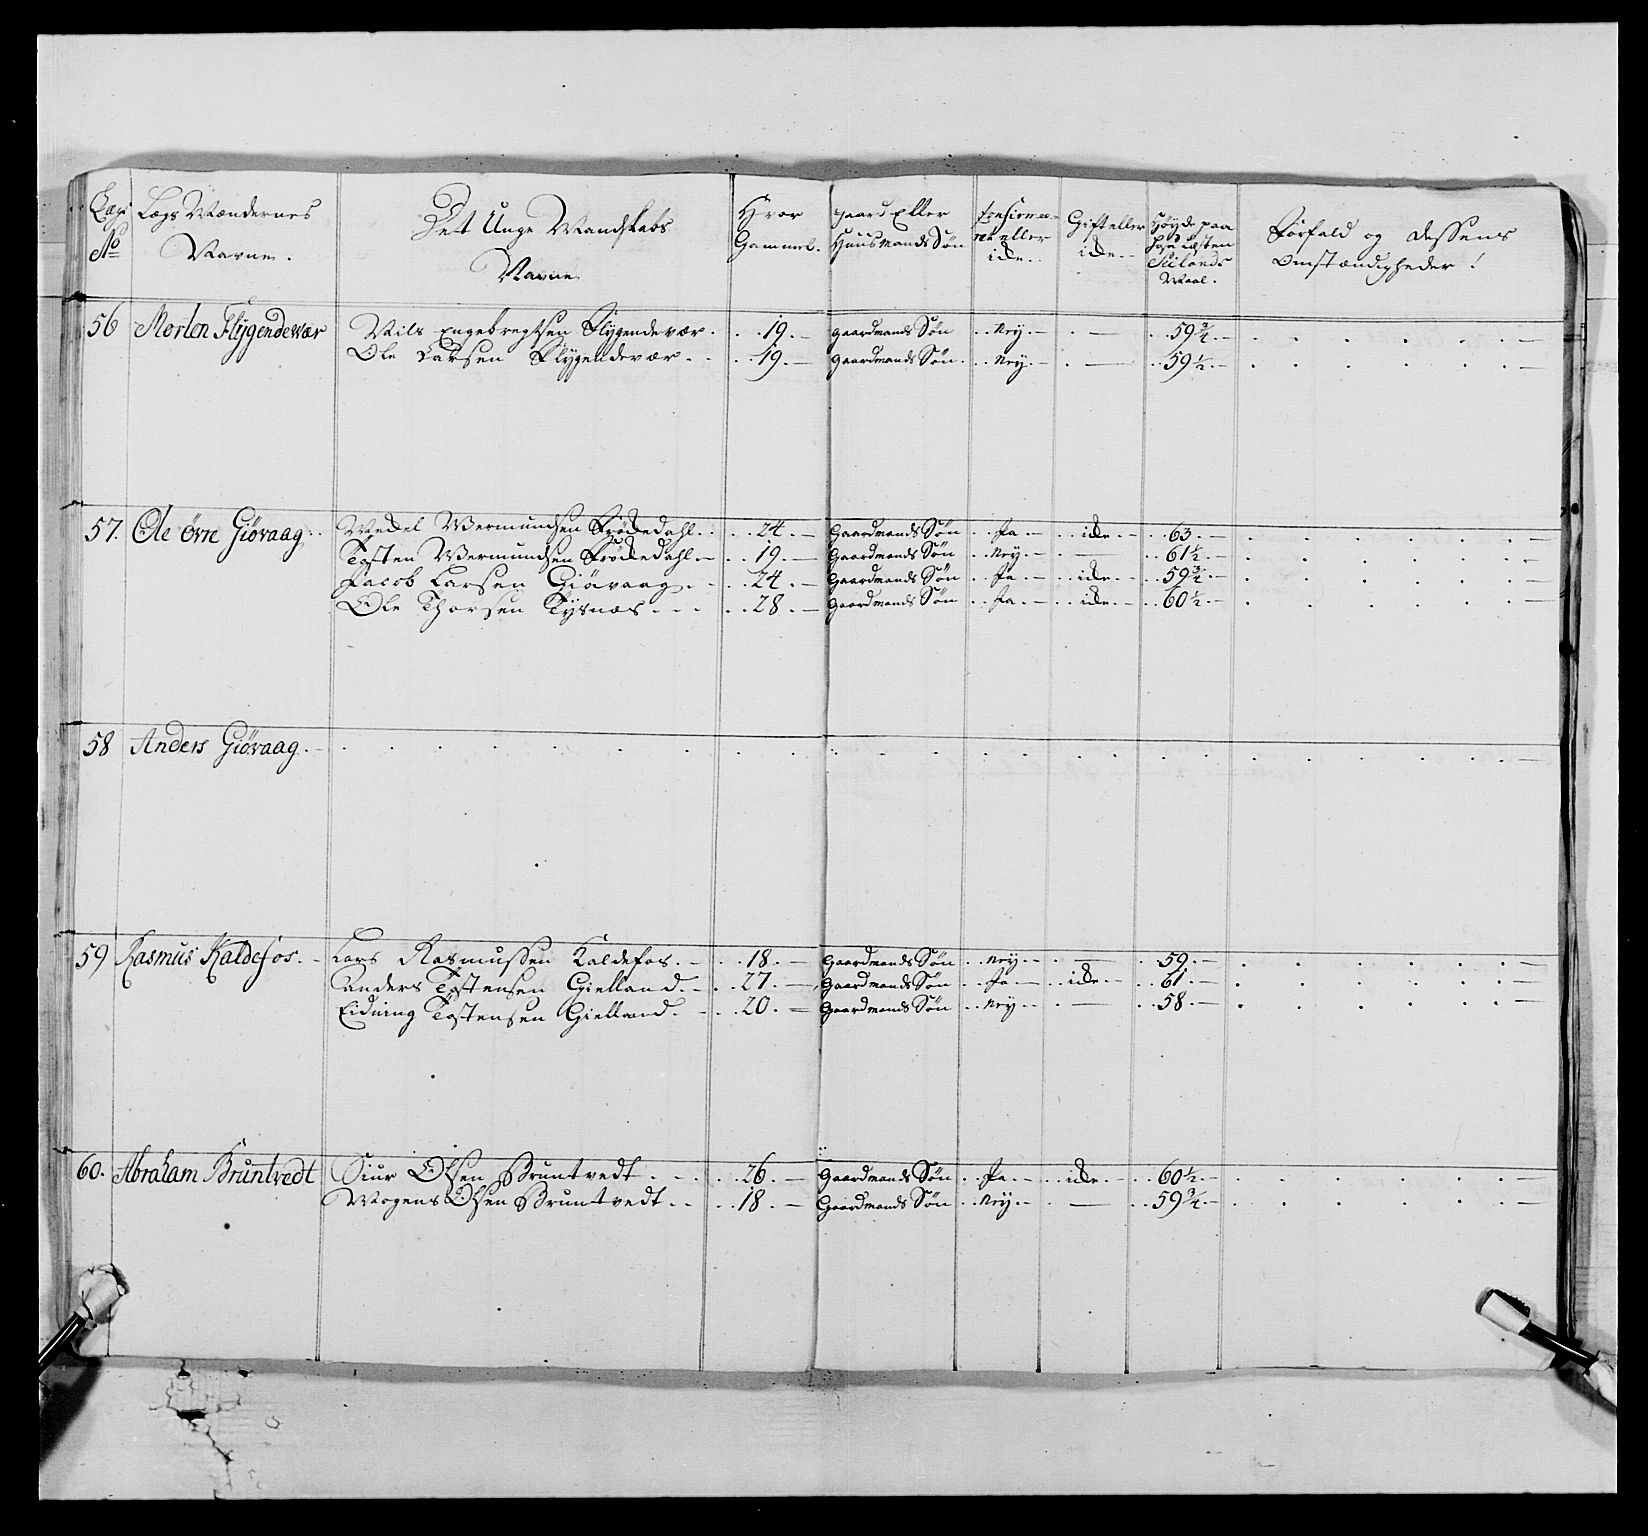 Lægs No | Lægs Mændernes Navne. | Det Unge Mandskabs Navne | Hvor Gammel. | Gaard Eller Huusmands Søn | eller icke. | Gift eller icke. | Høyde paa Seelands Maal. | Forfald og dessens Omstændigheder!
56 Morten Flÿgendevær Nils Engebregtsen Flygendevær. 19. Gaardmands Søn Neÿ. — 59 3/4. —
Ole Larsen Flÿgendevær. 19. Gaardmands Søn. Neÿ. — 59 1/2. —
57. Ole øvre Giøvaag. Wermundsen Frødedahl. 24. Gaardmands Søn Ja icke 63. —
Tosten Wermundsen Frødedahl. 19. Gaardmands Søn Neÿ. — 61 1/2. —
Jacob Larsen Giøvaag. 24. Gaardmands Søn Ja icke 59 3/4. —
Ole Thorsen Tÿsnæs. 28. Gaardmands Søn Ja icke 60 1/2. —
58 Anders Giøvaag. —
59 Rasmus Kaldefos. Lars Rasmussen Kaldefos. 18. Gaardmands Søn Neÿ. — 59. —
Anders Tostensen Gielland. 27. Gaardmands Søn Ja icke 61. —
Eidning Tostensen Gielland. 20. Gaardmands Søn Neÿ — 58. —
60. Abraham Bruntvedt Siur Olsen Bruntvedt. 26. Gaardmands Søn Ja. icke 60 1/2. —
Mogens Olsen Bruntvedt. 18. Gaardmands Søn Neÿ. — 59 3/4. —